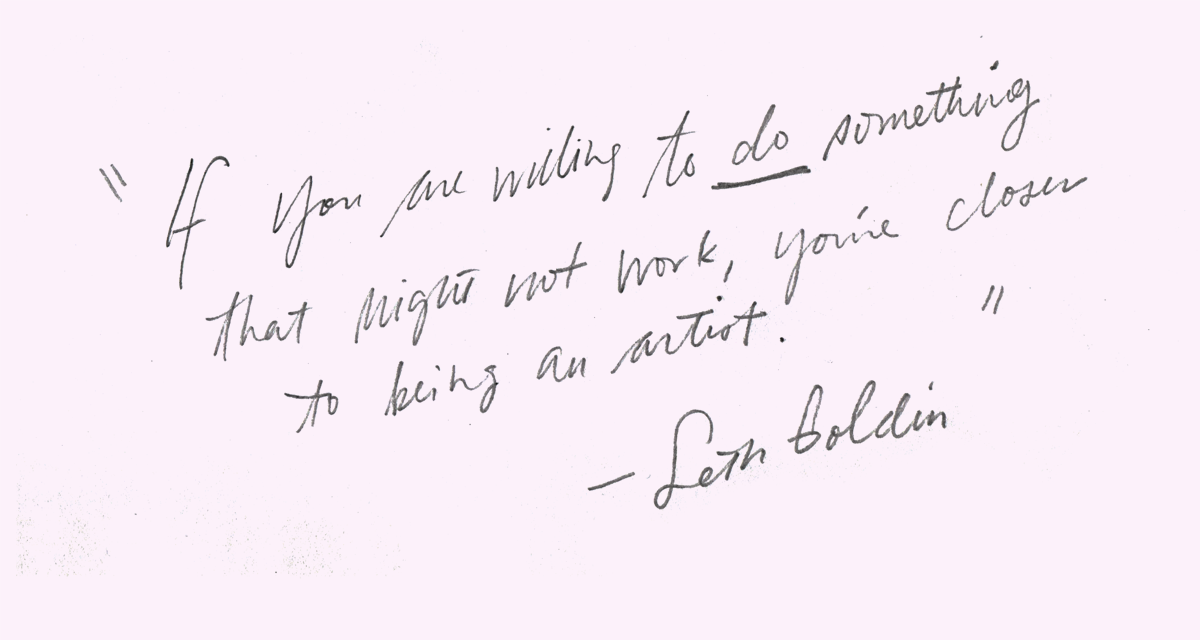 "If you are willing to do something
that might not work, you're closer
to being an artist."
- Seth Goldin